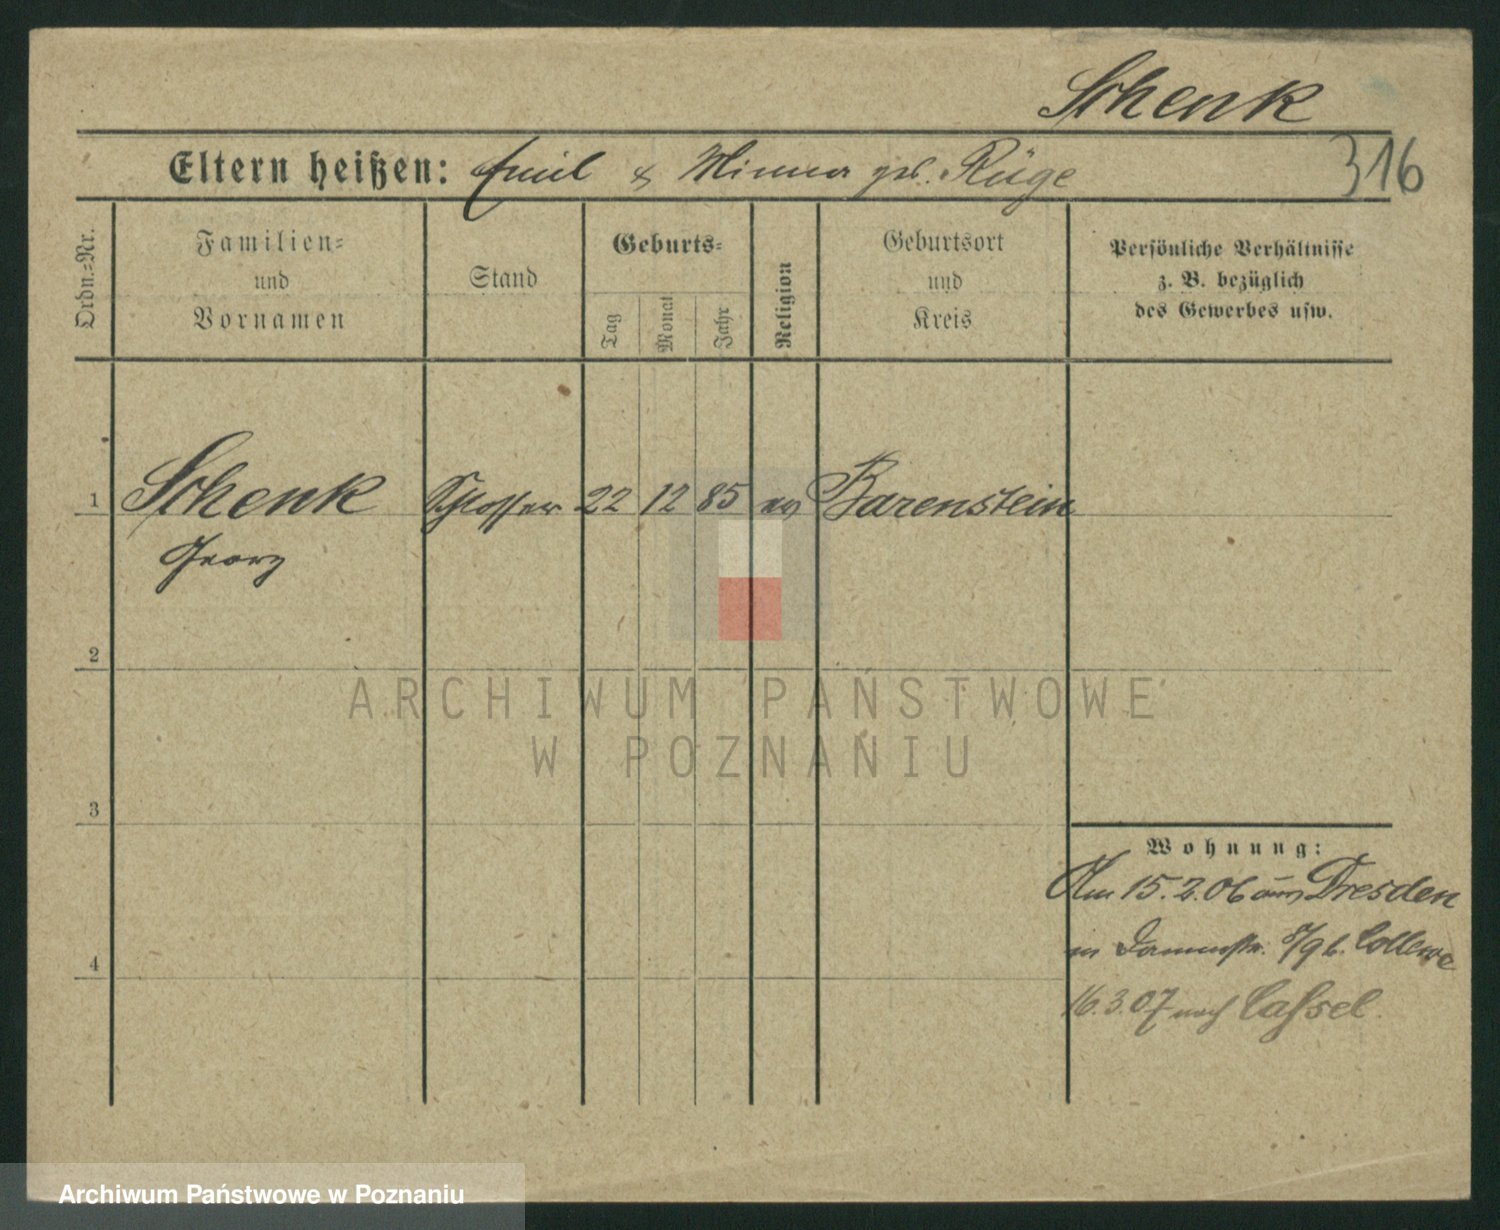 Schenk
316
Eltern heißen: Emil & Minna geb. Rüge
Ordn.=Nr.
Familien=
und
Vornamen
Stand
Geburts=
Tag
Monat
Jahr
Religion
Geburtsort
und
Kreis
Persönliche Verhältnisse
z. B. bezüglich
des Gewerbes usw.
1 Schenk Schlosser 22 12 85 ev Barenstein
Georg
2
3
4
Wohnung:
Am 15.2.06 aus Dresden
in 8/9 b.
16.3.07 nach Cassel.
ARCHIWUM PAŃSTWOWE
W POZNANIU
Archiwum Państwowe w Poznaniu